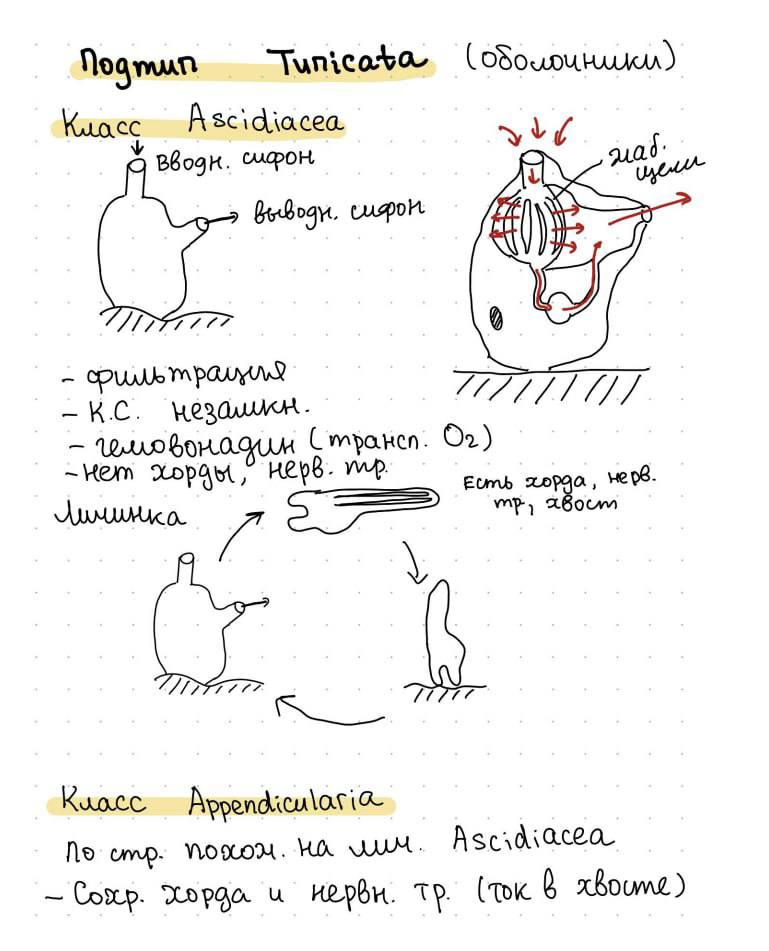 Подтип Tunicata (оболочники)
Класс Ascidiacea
вводн. сифон
выводн. сифон
жаб.
щели
- фильтрация
- К.С. незамкн.
- гемовонадин (трансп. O₂)
- нет хорды, нерв. тр.
Личинка
Есть хорда, нерв.
тр, хвост
Класс Appendicularia
По стр. похож. на лич. Ascidiacea
- Сохр. хорда и нервн. тр. (ток в хвосте)